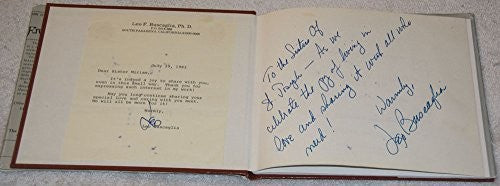 Leo F. Buscaglia, Ph. D.
SOUTH PASADENA, CALIFORNIA
July 19, 1982
Dear Sister Miriam,
It's indeed a joy to share with you,
even in this small way. Thank you for
expressing such interest in my work!
May you long continue sharing your
special love and caring with you know.
We will all be more for it!
Warmly,
Leo
Leo Buscaglia
To the Sisters of
St. Joseph — As we
celebrate the joy of living in
love and sharing it with all who
need!
Warmly,
Leo Buscaglia